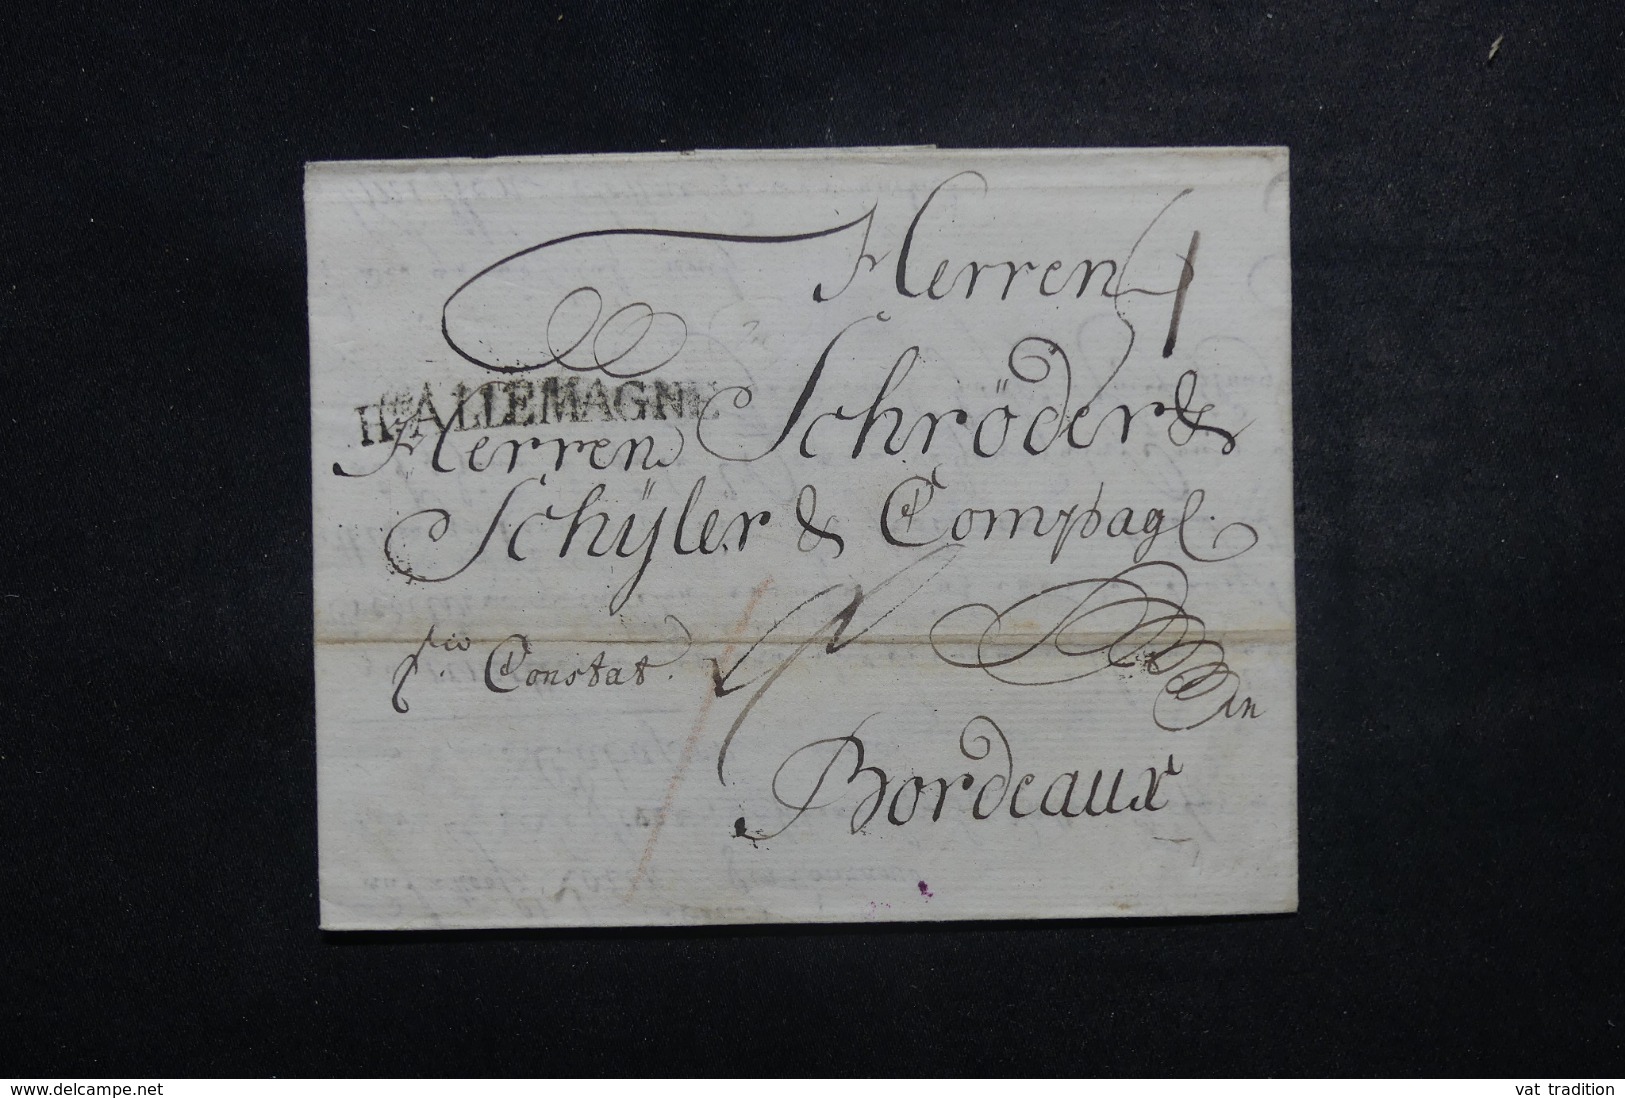 Herren
Hte ALLEMAGNE
Herren Schröder &
Schÿler & Compag
Constat.
in
Bordeaux
www.delcampe.net
vat tradition